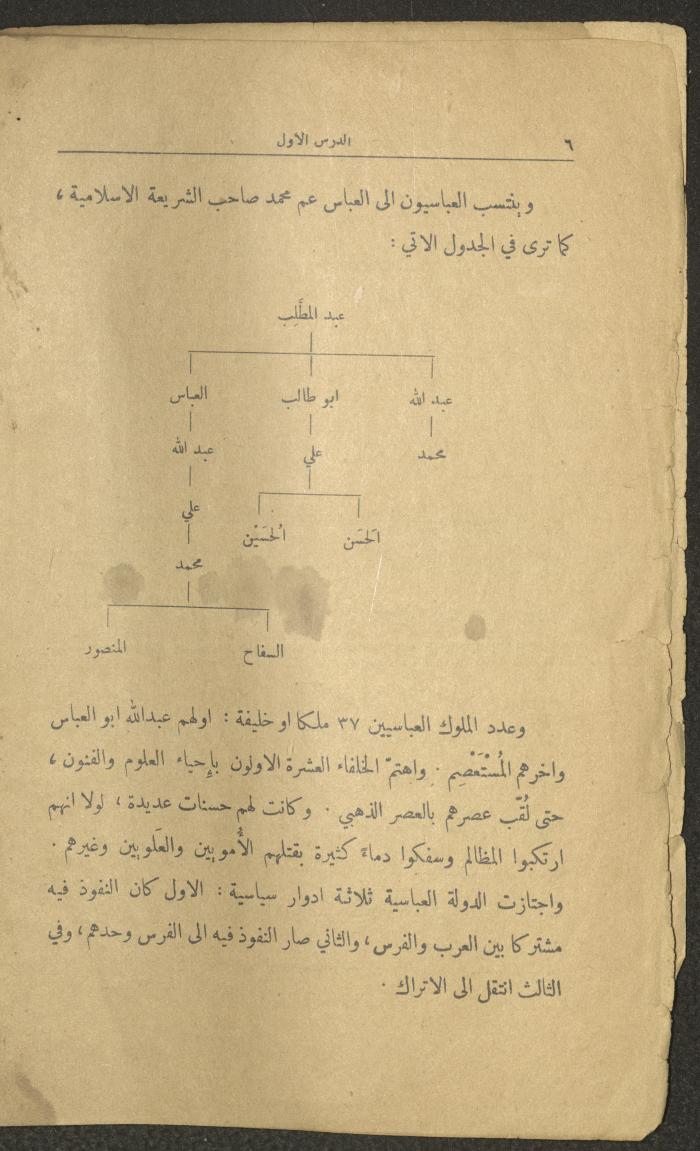 ٦
الدرس الاول
وينتسب العباسيون الى العباس عم محمد صاحب الشريعة الاسلامية ،
كما ترى في الجدول الاتي :
عبد المطَّلِب
عبد الله
ابو طالب
العباس
محمد
علي
عبد الله
علي
الحَسَن
الحُسَيْن
محمد
السفاح
المنصور
وعدد الملوك العباسيين ٣٧ ملكا او خليفة : اولهم عبدالله ابو العباس
واخرهم المُسْتَعْصِم . واهتمّ الخلفاء العشرة الاولون بإِحياء العلوم والفنون ،
حتى لُقّب عصرهم بالعصر الذهبي . وكانت لهم حسنات عديدة ، لولا انهم
ارتكبوا المظالم وسفكوا دماءً كثيرة بقتلهم الأُمويين والعَلويين وغيرهم .
واجتازت الدولة العباسية ثلاثة ادوار سياسية : الاول كان النفوذ فيه
مشتركا بين العرب والفرس ، والثاني صار النفوذ فيه الى الفرس وحدهم ، وفي
الثالث انتقل الى الاتراك .